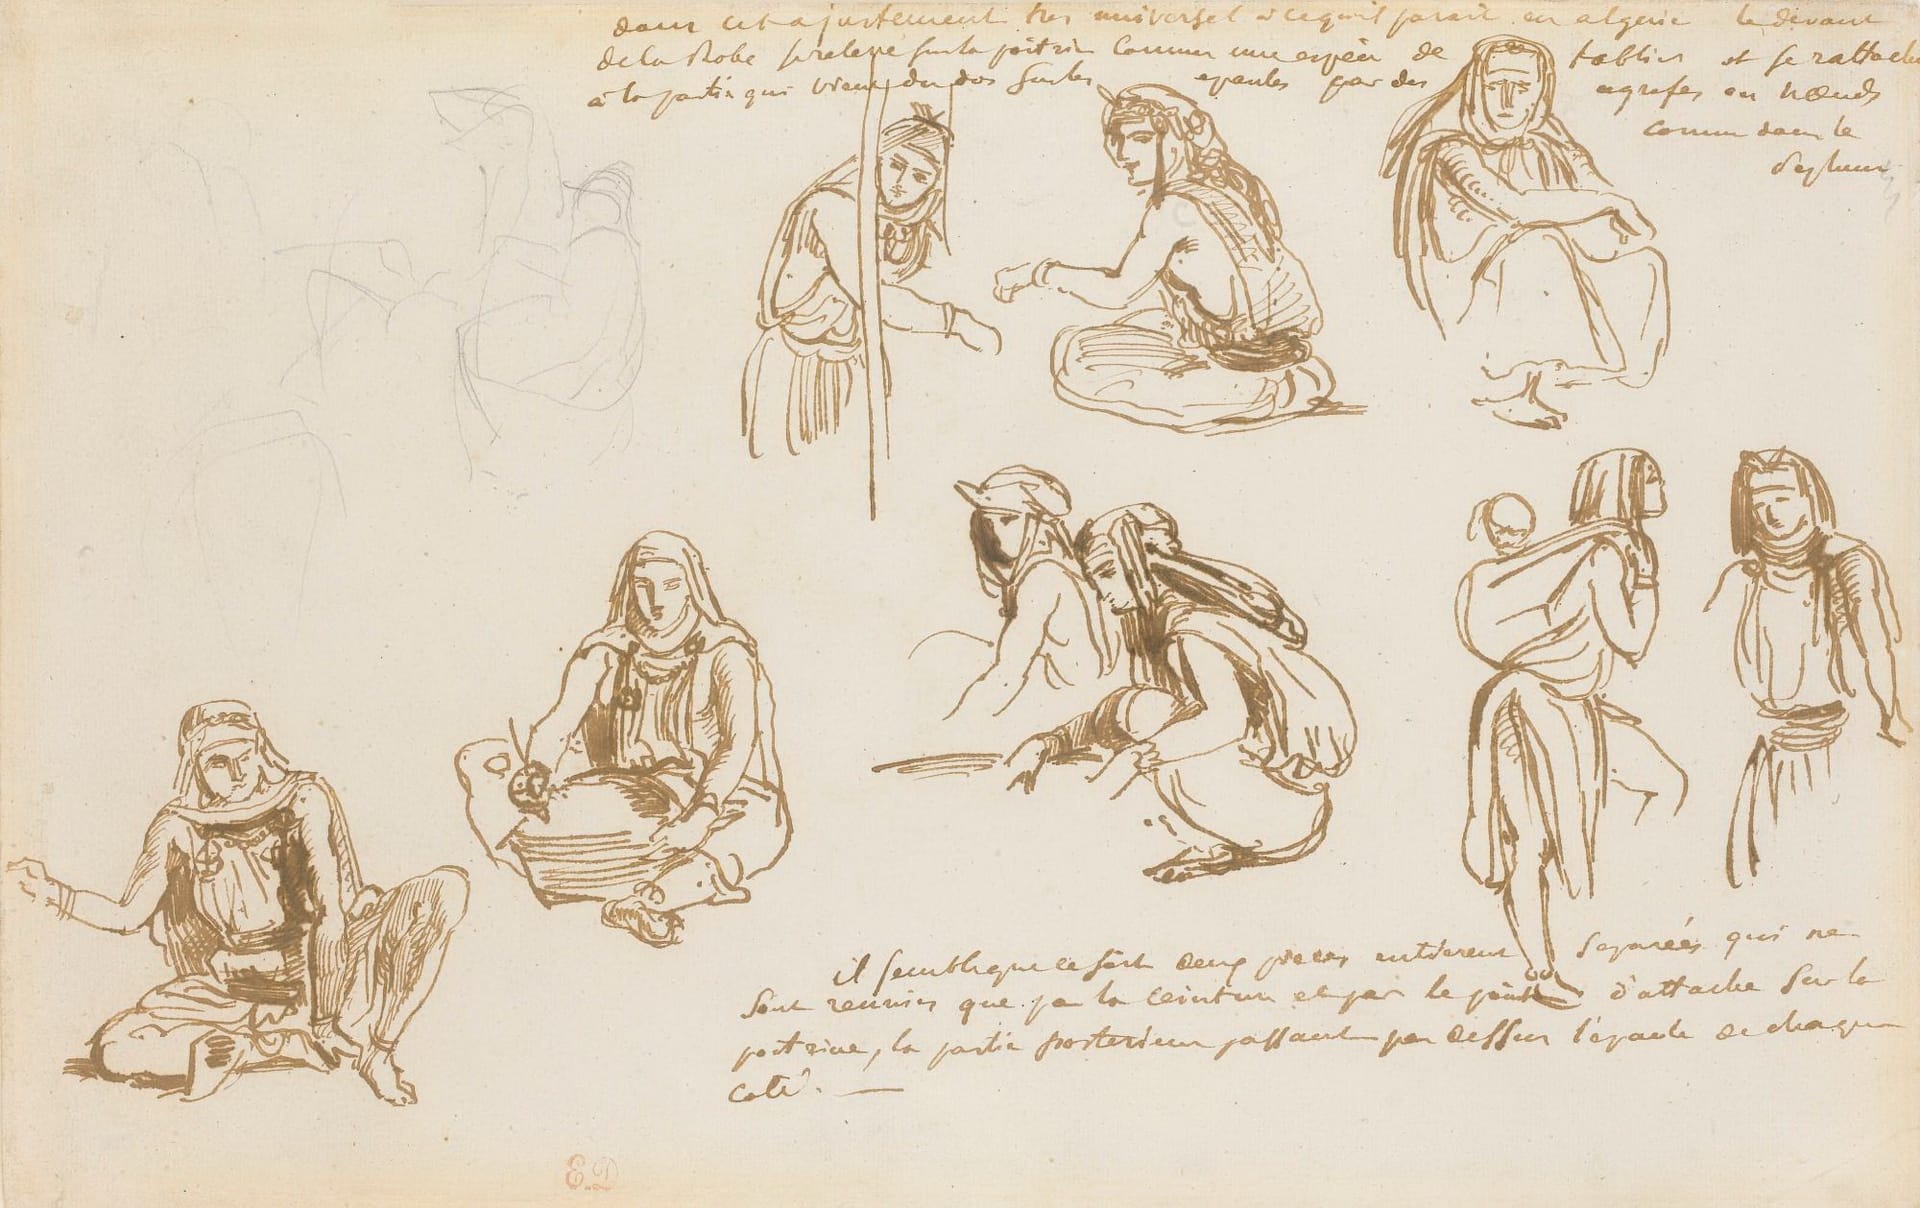 dans cet ajustement très universel à ce qu'il parait en algerie le devant
de la Robe se releve sur la poitrine comme une espèce de tablier et se rattache
à la partie qui vient du dos sur les epaules par des agrafes ou nœuds
comme dans le

il semble que ce soit deux pieces entierement separées qui ne
sont reunies que par la ceinture et par le point d'attache sur la
poitrine, la partie posterieure passant par dessus l'epaule de chaque
coté. —
E.D